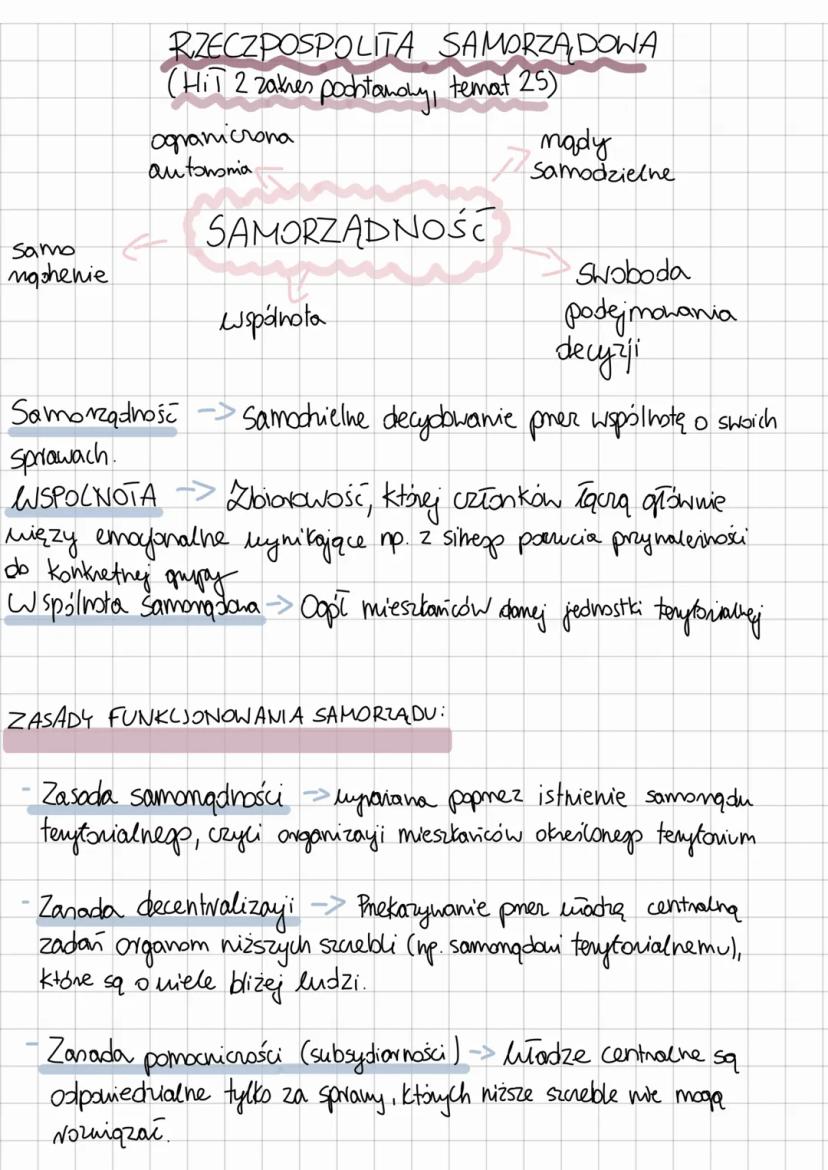 RZECZPOSPOLITA SAMORZĄDOWA
(HiT 2 zakres podstawowy, temat 25)
ograniczona
autonomia
rządy
samodzielne
SAMORZĄDNOŚĆ
samo
rządzenie
swoboda
podejmowania
decyzji
wspólnota
Samorządność -> Samodzielne decydowanie przez wspólnotę o swoich
sprawach.
WSPÓLNOTA -> Zbiorowość, której członków łączą głównie
więzy emocjonalne wynikające np. z silnego poczucia przynależności
do konkretnej grupy
Wspólnota samorządowa -> Ogół mieszkańców danej jednostki terytorialnej
ZASADY FUNKCJONOWANIA SAMORZĄDU:
- Zasada samorządności -> wyrażana poprzez istnienie samorządu
terytorialnego, czyli organizacji mieszkańców określonego terytorium
- Zasada decentralizacji -> Przekazywanie przez władzę centralną
zadań organom niższych szczebli (np. samorządowi terytorialnemu),
które są o wiele bliżej ludzi.
- Zasada pomocniczości (subsydiarności) -> Władze centralne są
odpowiedzialne tylko za sprawy, których niższe szczeble nie mogą
rozwiązać.